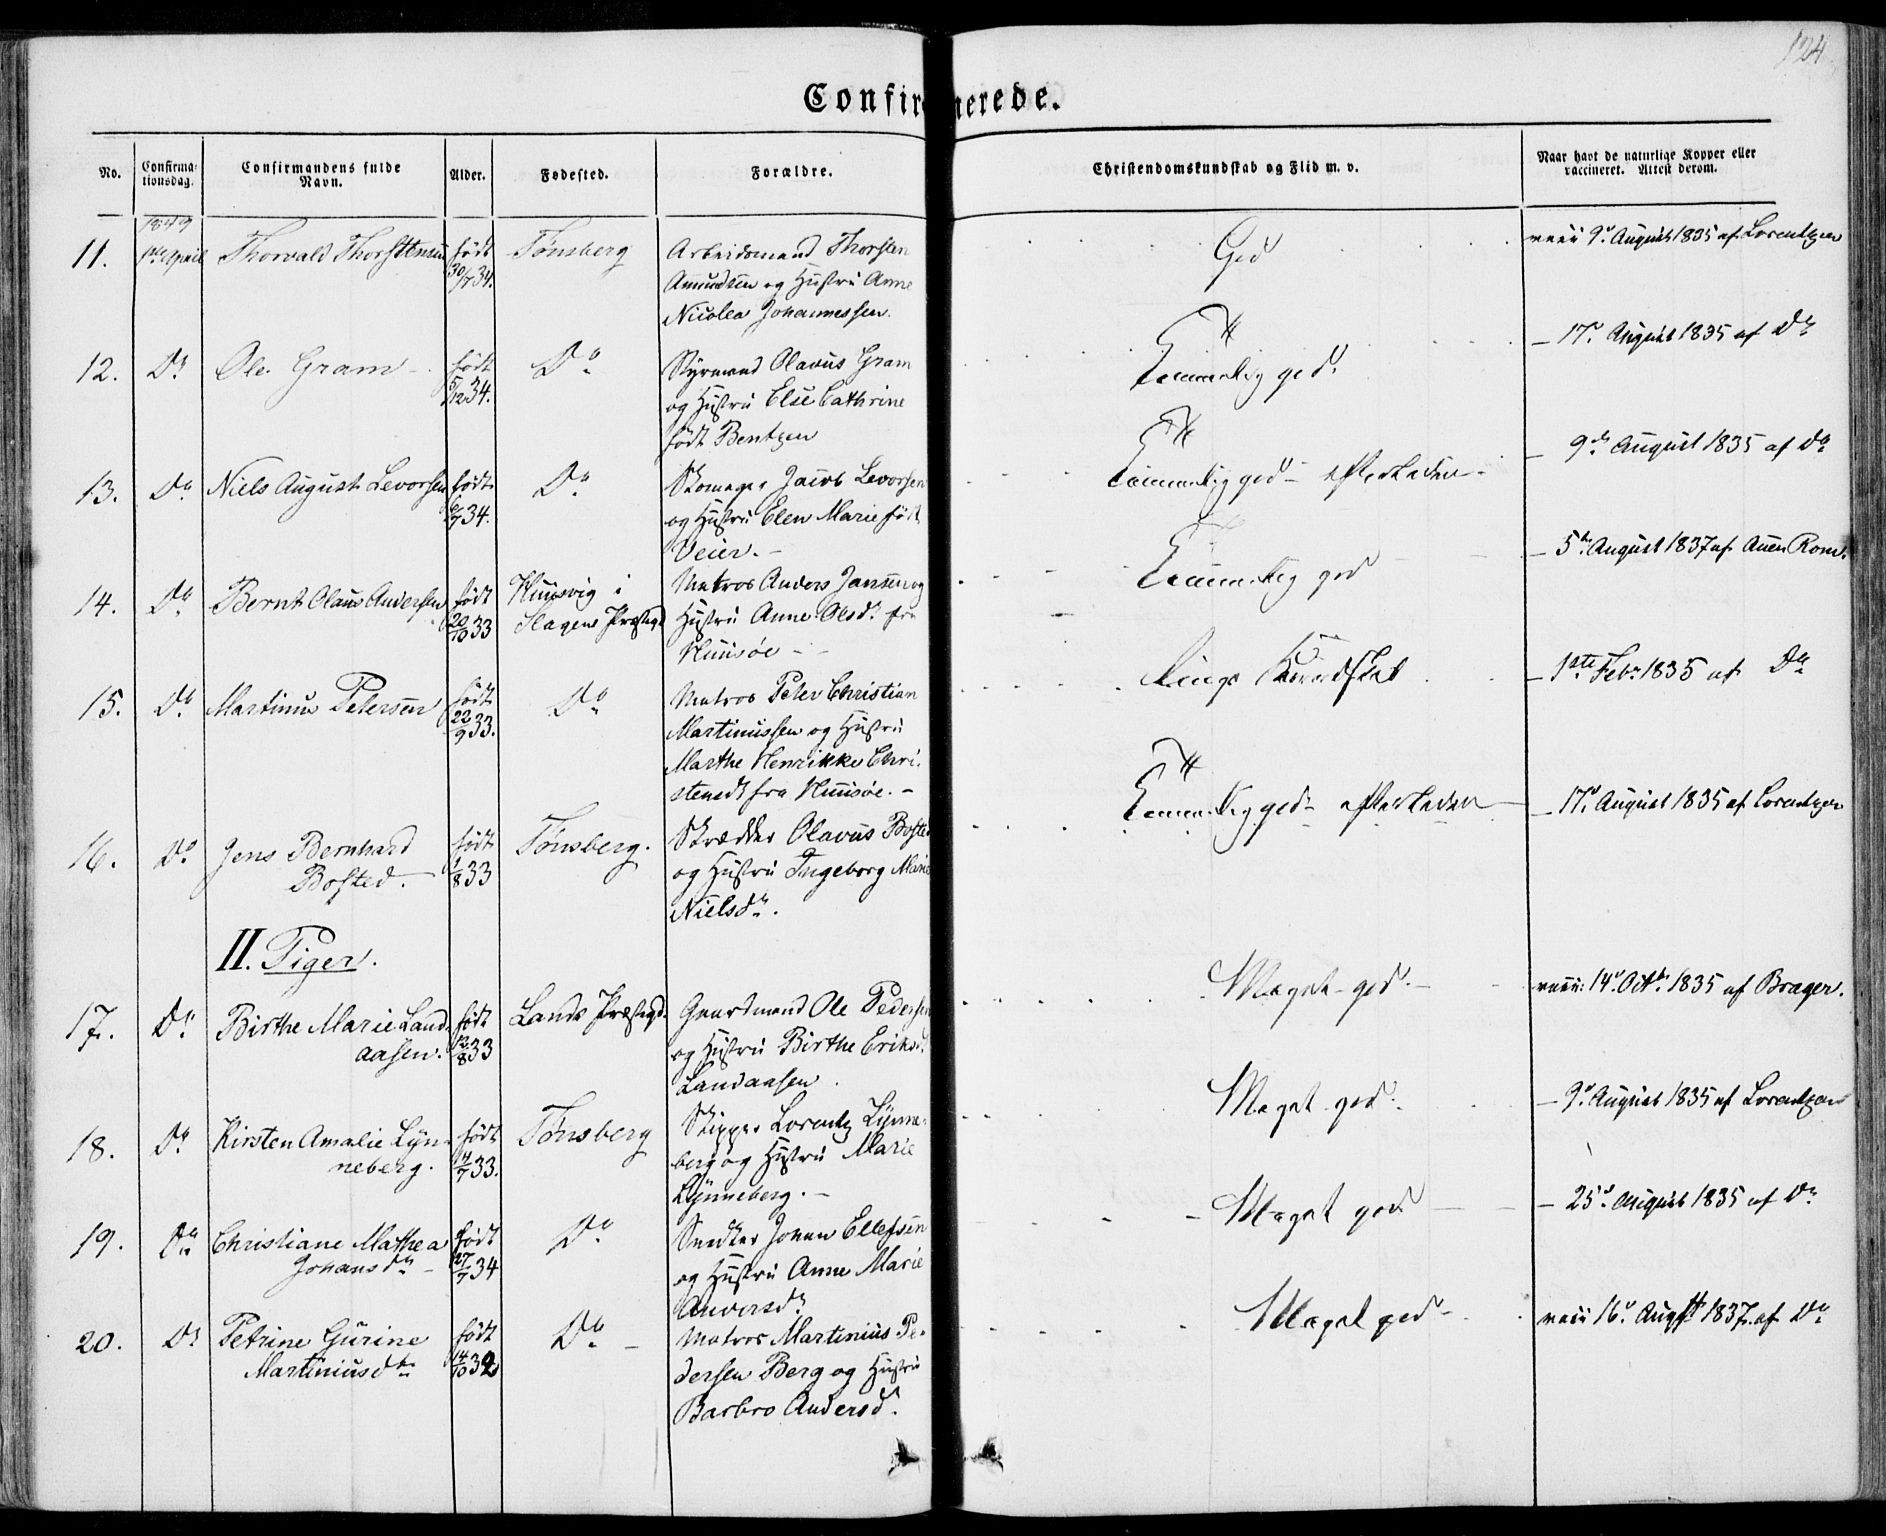 124
Confirmerede.
No.
Confirma-
tionsdag.
Confirmandens fulde
Navn.
Alder.
Fødested.
Forældre.
Christendomskundskab og Flid m. v.
Naar havt de naturlige Kopper eller
vaccineret. Attest derom.
1849
11. 1ste April Thorvald Thorstensen født Tønsberg Arbeidsmand Thorsten God vacc: 9d August 1835 af Lorentzen
30/7 34. Amundsen og Hustru Anne
Nicolea Johannessen.
12. Do Ole Gram født Do Styrmand Olavus Gram Temmelig god. – 17d August 1835 af Do
5/12 34. og Hustru Else Cathrine
født Bentzen
13. Do Niels August Levorsen født Do Skomager Jacob Levorsen Temmelig god – – 9de August 1835 af Do
6/7 34. og Hustru Elen Marie født
Veier. –
14. Do Bernt Olaus Andersen født Huusvig i Matros Anders Jansen og Temmelig god – 5te August 1837 af
20/10 33 Slagens Præstegd Hustru Anne Olsdr fra
Huusøe –
15. Do Martinus Petersen født Do Matros Peter Christian Kundskab – 1ste Febr 1835 af Do
22/9 33. Martinussen og Hustru
Marthe Henrikke Chri-
stensdr fra Huusøe. –
16. Do Jens Bernhard født Tønsberg. Skrædder Olavus Bosted Temmelig god – – 17d August 1835 af Lorentzen
Bosted. 1/8 33 og Hustru Ingeborg Marie
Nielsdr.
II. Piger.
17. Do Birthe Marie Land- født Lands Præstegd. Gaardmand Ole Pedersen Meget god. – vacc: 14d Octbr 1835 af Brager.
aasen. 12/8 33 og Hustru Birthe Eriksd.
Landaasen.
18. Do Kirsten Amalie Lyn- født Tønsberg Skipper Lorentz Lynne- Meget god. – 9d August 1835 af Lorentzen
neberg. 4/7 33. berg og Hustru Marie
Lynneberg. –
19. Do Christiane Mathea født Do Snedker Johan Ellefsen Meget god – 25d August 1835 af Do
Johansdr – 27/7 34 og Hustru Anne Marie
Andersdr
20. Do Petrine Gurine født Do – Matros Martinius Pe- Meget god – vacc 16d Augst 1837 af Do
Martiniusdtr 14/10 32 dersen Berg og Hustru
Barbro Andersd.